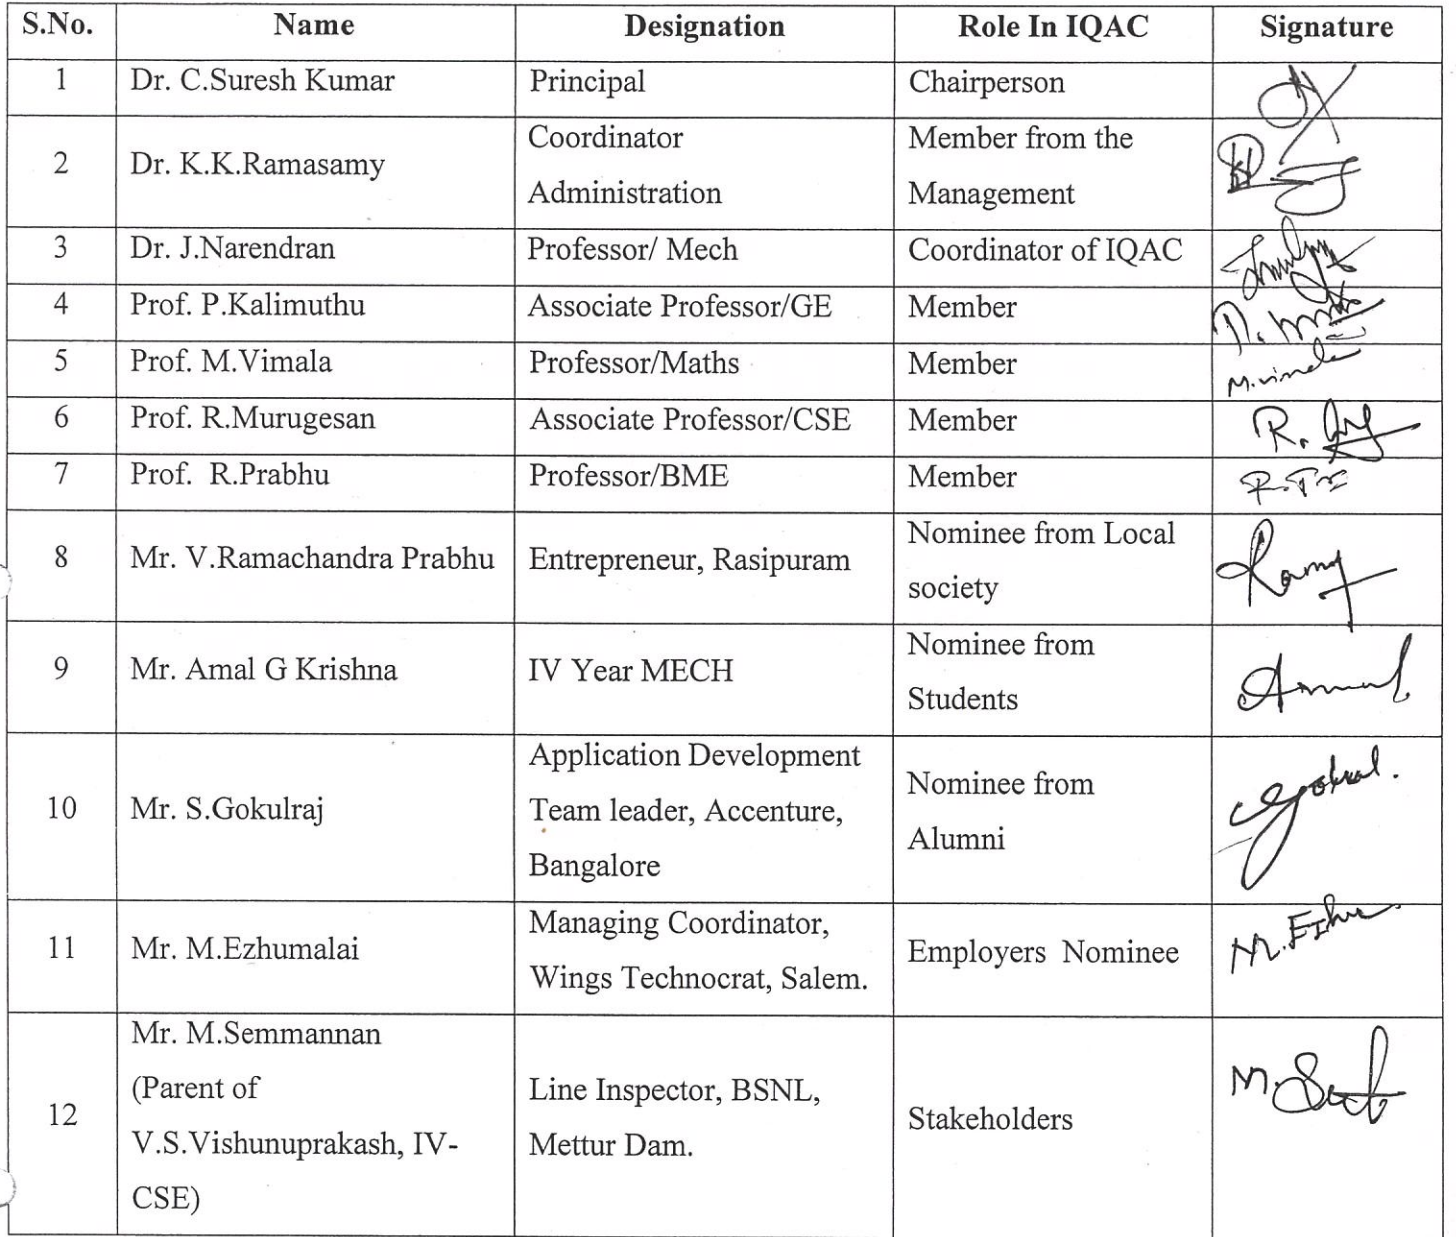 S.No. Name Designation Role In IQAC Signature
1 Dr. C.Suresh Kumar Principal Chairperson
2 Dr. K.K.Ramasamy Coordinator
Administration Member from the
Management
3 Dr. J.Narendran Professor/ Mech Coordinator of IQAC
4 Prof. P.Kalimuthu Associate Professor/GE Member
5 Prof. M.Vimala Professor/Maths Member M.vimala
6 Prof. R.Murugesan Associate Professor/CSE Member R.
7 Prof. R.Prabhu Professor/BME Member
8 Mr. V.Ramachandra Prabhu Entrepreneur, Rasipuram Nominee from Local
society
9 Mr. Amal G Krishna IV Year MECH Nominee from
Students
10 Mr. S.Gokulraj Application Development
Team leader, Accenture,
Bangalore Nominee from
Alumni Gokul.
11 Mr. M.Ezhumalai Managing Coordinator,
Wings Technocrat, Salem. Employers Nominee
12 Mr. M.Semmannan
(Parent of
V.S.Vishunuprakash, IV-
CSE) Line Inspector, BSNL,
Mettur Dam. Stakeholders